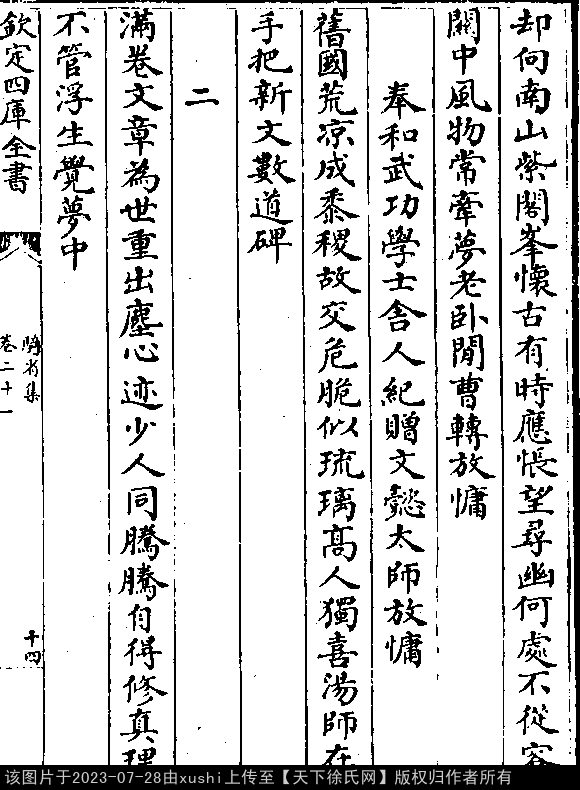 却向南山紫閣峯懷古有時應悵望尋幽何處不從容
關中風物常牽夢老臥閒曹轉放慵
奉和武功學士舍人紀贈文懿太師放慵
舊國荒凉成黍稷故交危脆似琉璃髙人獨喜湯師在
手把新文數道碑
二
滿卷文章為世重出塵心迹少人同騰騰自得修真理
不管浮生覺夢中
欽定四庫全書
騎省集
卷二十一
十四
该图片于2023-07-28由xushi上传至【天下徐氏网】版权归作者所有